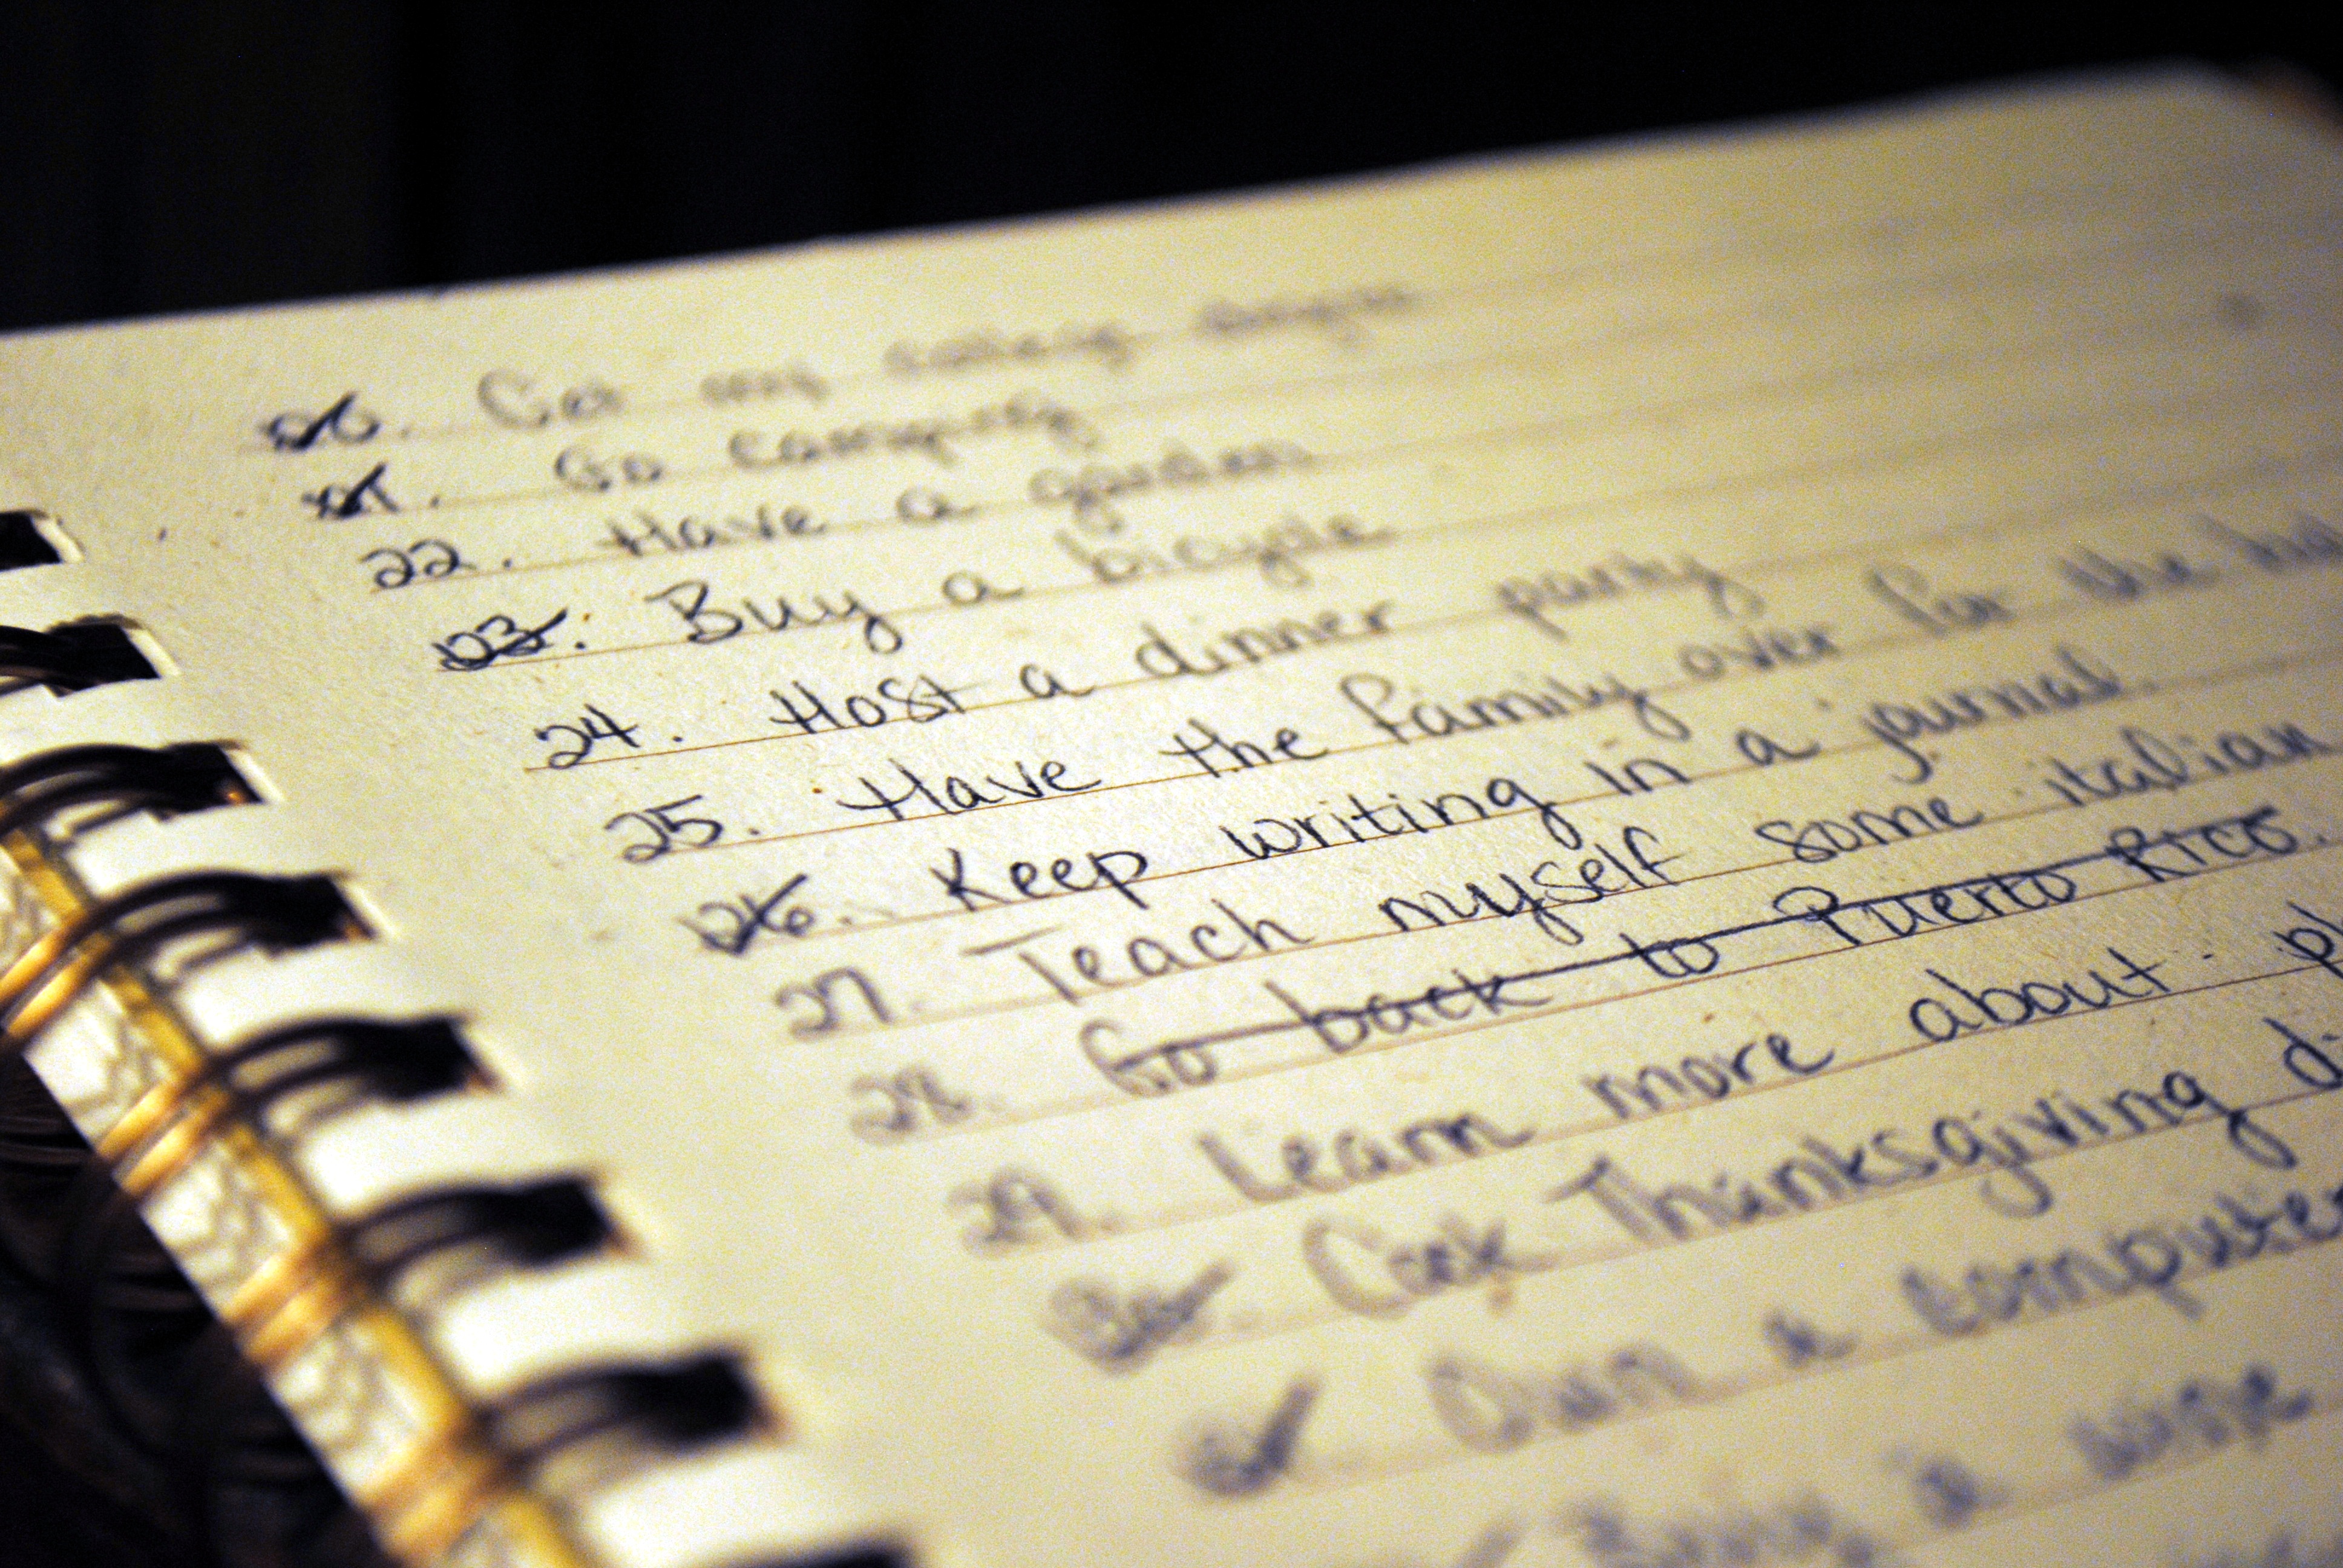 20. Get my
21. Go camping
22. Have a garden
23. Buy a bicycle
24. Host a dinner party
25. Have the family over for the
26. Keep writing in a journal.
27. Teach myself some italian
28. Go back to Puerto Rico.
29. Learn more about
30. Cook Thanksgiving
Own a computer
a wine